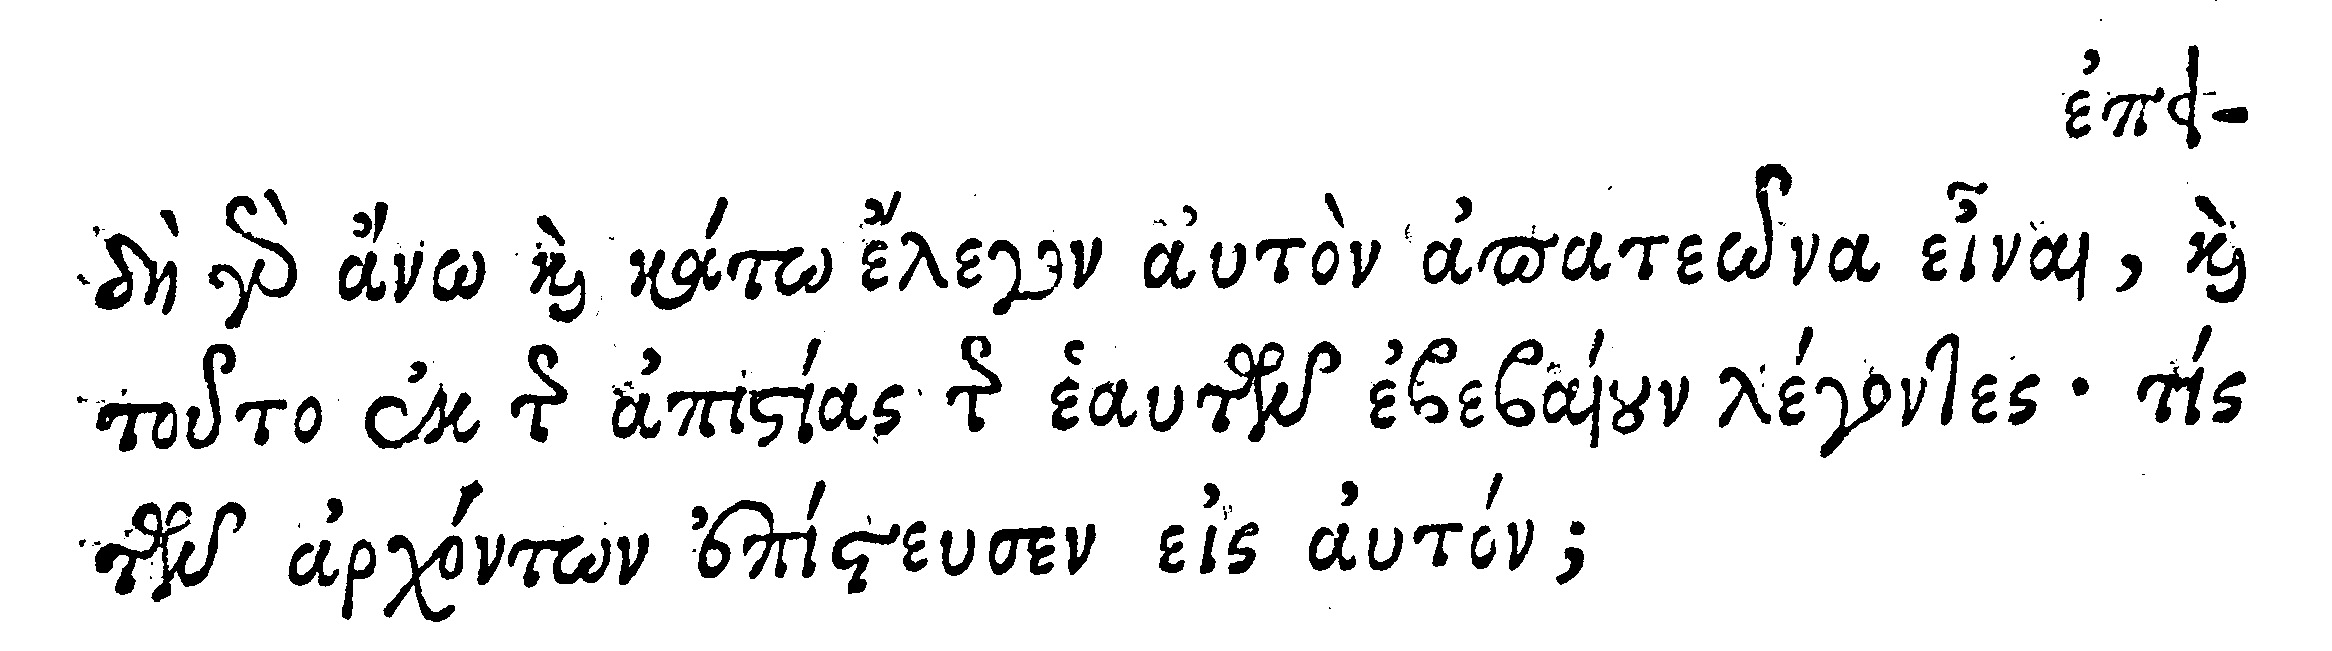 ἐπει-
δὴ γὰρ ἄνω καὶ κάτω ἔλεγον αὐτὸν ἀπατεῶνα εἶναι, καὶ
τοῦτο ἐκ τῆς ἀπιστίας τῆς ἑαυτῶν ἐβεβαίουν λέγοντες· τίς
τῶν ἀρχόντων ἐπίστευσεν εἰς αὐτόν;